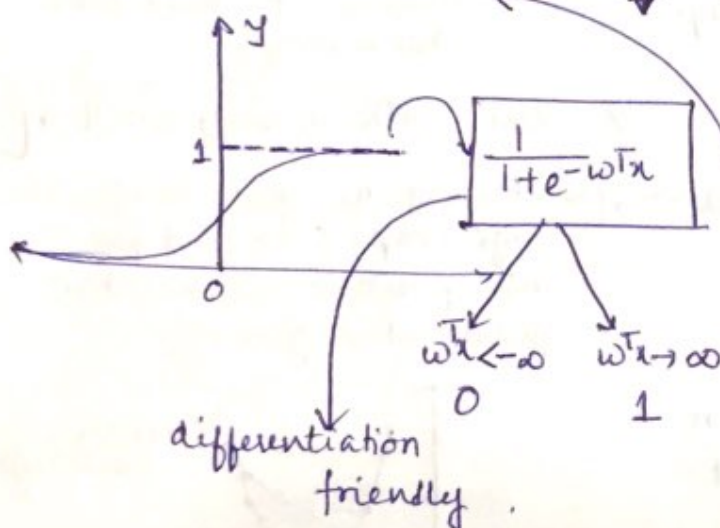 y
1
0
1
1+e^-ωᵀx
ωᵀx<-∞
ωᵀx→∞
0
1
differentiation
friendly.